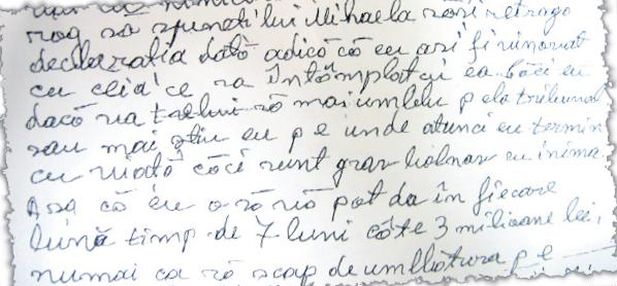 rog să spuneți lui Mihaela să-și retragă
declarația dată adică că eu ași fi vinovat
cu ceia ce sa întîmplat și ea căci eu
dacă va trebui să mai umblu pela tribunal
sau mai știu eu pe unde atunci eu termin
cu viața căci sunt grav bolnav cu inima
Așa că eu o să vă pot da în fiecare
lună timp de 7 luni câte 3 milioane lei,
numai ca să scap de umblătura pe